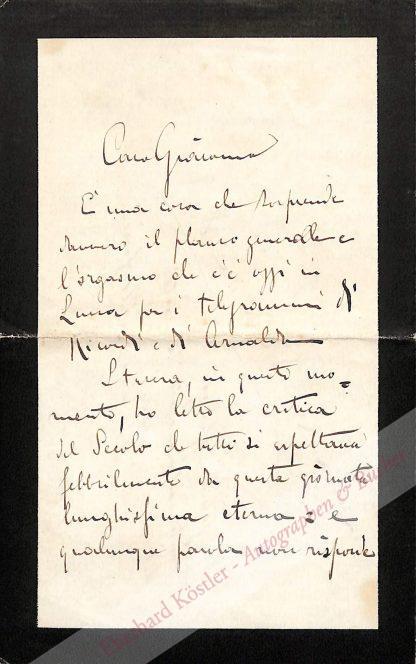 Caro Giacomo
È una cosa che sorprende
davvero il plauso generale e
l'orgasmo che c'è oggi in
Lucca per i telegrammi di
Ricordi e di Arnaldo
Stasera, in questo mo=
mento, ho letto la critica
del Secolo che tutti si aspettava
febbrilmente da questa giornata
lunghissima eterna e
qualunque parola non risponde
Eberhard Köstler - Autographen & Bücher